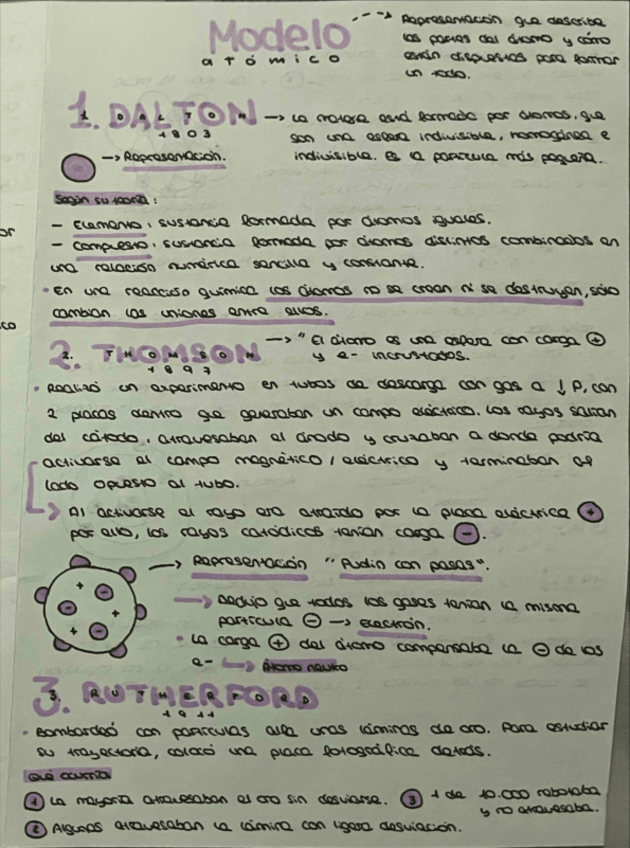 Modelo
atómico
Representación que describe
las partes del átomo y cómo
están dispuestas para formar
un todo.
1. DALTON
1803
→ La materia está formada por átomos, que
son una esfera indivisible, homogénea e
indivisible. Es la partícula más pequeña.
→ Representación.
Según su teoría:
- Elemento: sustancia formada por átomos iguales.
- Compuesto: sustancia formada por átomos distintos combinados en
una relación numérica sencilla y constante.
• En una reacción química los átomos no se crean ni se destruyen, sólo
cambian las uniones entre ellos.
or
co
2. THOMSON
1897
→ "El átomo es una esfera con carga +
y e- incrustados.
• Realizó un experimento en tubos de descarga con gas a ↓ P, con
2 placas dentro que generaban un campo eléctrico. Los rayos salían
del cátodo, atravesaban el ánodo y cruzaban a donde podría
activarse el campo magnético / eléctrico y terminaban al
lado opuesto al tubo.
→ Al activarse el rayo era atraído por la placa eléctrica +
por ello, los rayos catódicos tenían carga -.
→ Representación "Pudin con pasas".
→ Dedujo que todos los gases tenían la misma
partícula - → electrón.
• La carga + del átomo compensaba la - de los
e- → Átomo neutro
3. RUTHERFORD
1911
• Bombardeó con partículas alfa unas láminas de oro. Para estudiar
su trayectoria, colocó una placa fotográfica detrás.
Qué ocurría
1 La mayoría atravesaban el oro sin desviarse.
2 Algunas atravesaban la lámina con ligera desviación.
3 1 de 10.000 rebotaba
y no atravesaba.